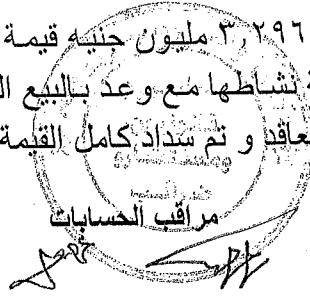 ٣,٢٩٦ مليون جنيه قيمة
نشاطها مع وعد بالبيع
و تم سداد كامل القيمة
مراقب الحسابات